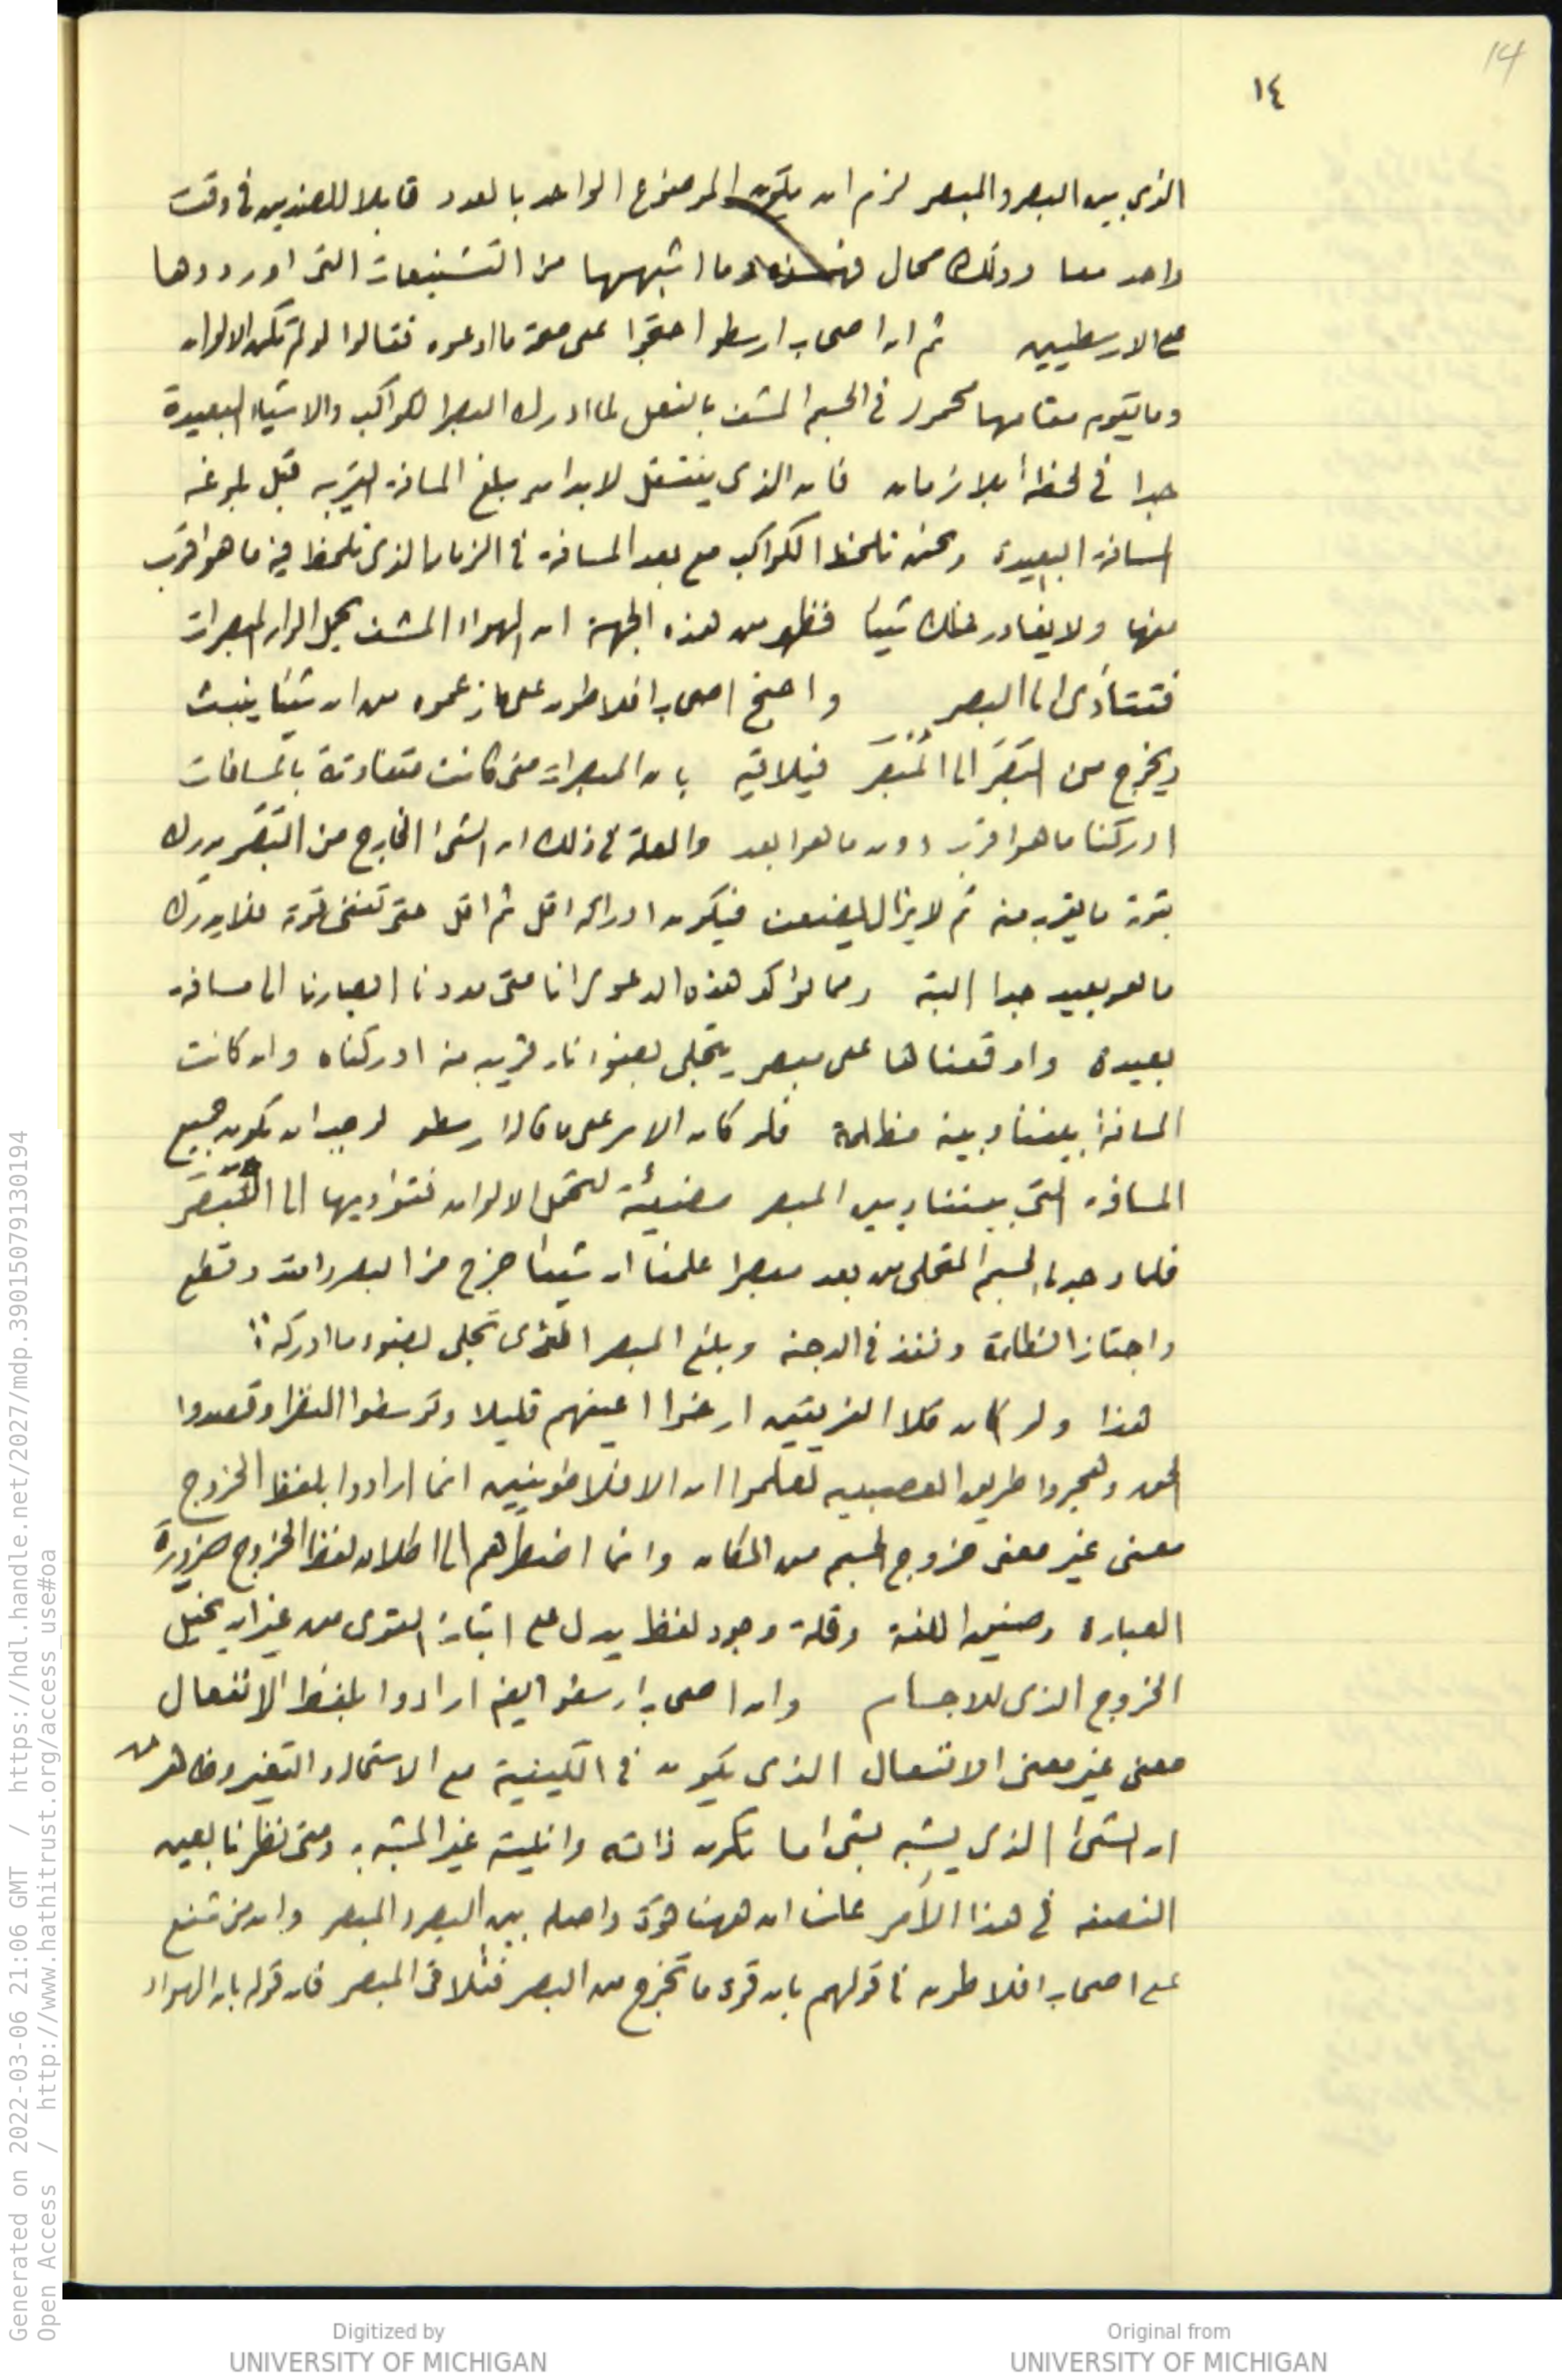 14
١٤
الذي بين البصر والمبصر لزم ان يكون الموضوع الواحد بالعدد قابلا للضدين في وقت
واحد معا وذلك محال فهذه وما اشبهها من التشنيعات التى اوردوها
على الارسطيين ثم ان اصحاب ارسطو احتجوا على صحة ما ادعوه فقالوا لو لم تكن الالوان
وما يقوم مقامها محمولا في الجسم المشف بالفعل لما ادرك البصر الكواكب والاشياء البعيدة
جدا في لحظة بلا زمان فان الذى ينتقل لابد ان يبلغ المسافة القريبة قبل بلوغه
المسافة البعيدة ونحن نلحظ الكواكب مع بعد المسافة في الزمان الذى نلحظ فيه ما هو اقرب
منها ولا يغادر ذلك شيئا فظهر من هذه الجهة ان الهواء المشف يحمل الوان المبصرات
فتتأدى الى البصر واحتج اصحاب افلاطون على ما زعموه من ان شيئا ينبث
ويخرج من البَصَر الى المُبصَر فيلاقيه بان المبصرات متى كانت متفاوتة بالمسافات
ادركنا ما هو اقرب دون ما هو ابعد والعلة في ذلك ان الشئ الخارج من البَصَر يدرك
بقوته ما يقرب منه ثم لا يزال يضعف فيكون ادراكه اقل ثم اقل حتى تفنى قوته فلا يدرك
ما هو بعيد جدا البتة ومما يؤاكد هذه الدعوى انا متى مددنا ابصارنا الى مسافة
بعيدة واوقعناها على مبصر يتجلى بضوء نار قريبة منه ادركناه وان كانت
المسافة بيننا وبينه مظلمة فلو كان الامر على ما قال ارسطو لوجب ان يكون جميع
المسافة التى بيننا وبين المبصر مضيئة لتحمل الالوان فتؤديها الى البَصَر
فلما وجدنا الجسم المتجلى من بعد مبصرا علمنا ان شيئا خرج من البصر وامتد وقطع
واجتاز الظلمة ونفذ في الدجنة وبلغ المبصر الذى تجلى بضوء ما ادركه
هذا ولو كان كلا الفريقين ارخوا اعينهم قليلا وتوسطوا النظر وقصدوا
الحق وهجروا طريق العصبية لعلموا ان الافلاطونيين انما ارادوا بلفظ الخروج
معنى غير معنى خروج الجسم من المكان وانما اضطرهم الى اطلاق لفظ الخروج ضرورة
العبارة وضيق اللغة وقلة وجود لفظ يدل على اثبات القوى من غير ان يخيل
الخروج الذى للاجسام وان اصحاب ارسطو ايضا ارادوا بلفظ الانفعال
معنى غير معنى الانفعال الذى يكون في الكيفية مع الاستحالة والتغير وظاهر من
ان الشئ الذى يشبه بشئ ما تكون ذاته وانيته غير المشبه به ومتى نظرنا بعين
النصفه في هذا الأمر علمنا ان ههنا قوة واصلة بين البصر والمبصر وان من شنع
على اصحاب افلاطون في قولهم بان قوى ما تخرج من البصر فتلاقى المبصر فان قوله بان الهواء
Generated on 2022-03-06 21:06 GMT / https://hdl.handle.net/2027/mdp.39015079130194
Open Access / http://www.hathitrust.org/access_use#oa
Digitized by
UNIVERSITY OF MICHIGAN
Original from
UNIVERSITY OF MICHIGAN